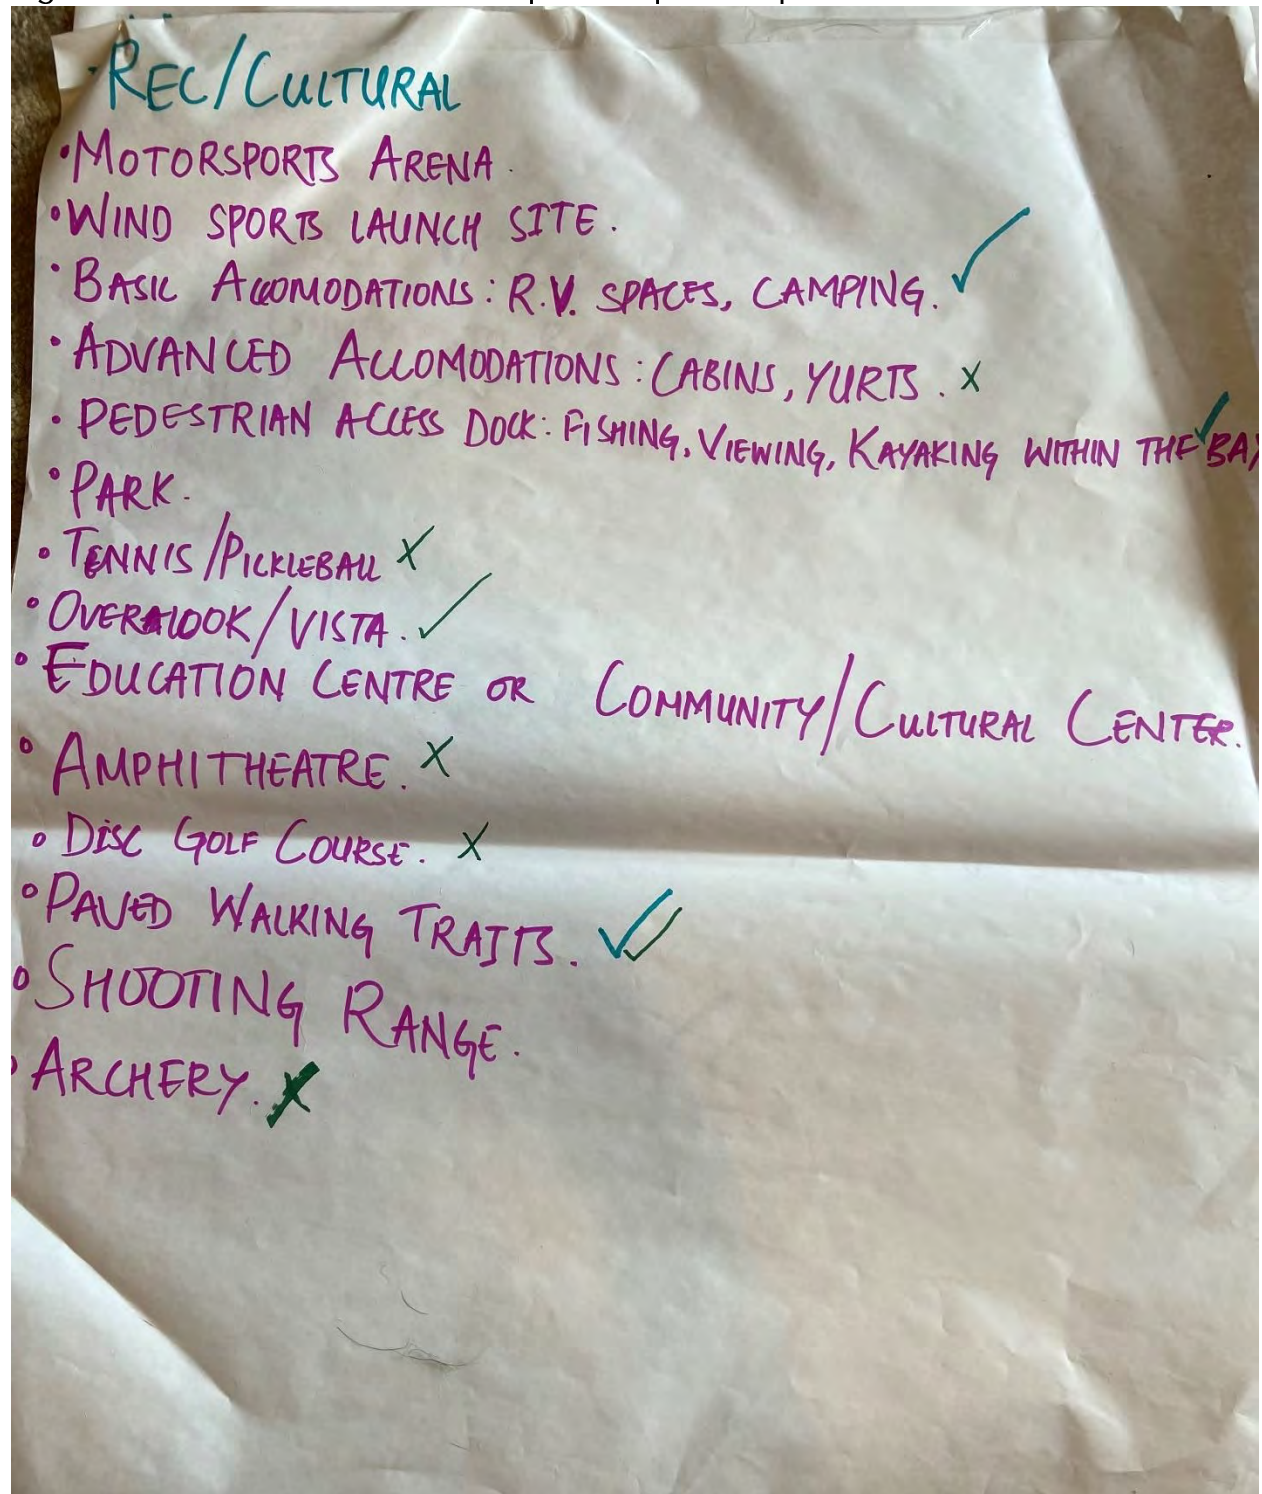 REC/CULTURAL
• MOTORSPORTS ARENA.
• WIND SPORTS LAUNCH SITE.
• BASIC ACCOMODATIONS: R.V. SPACES, CAMPING. ✓
• ADVANCED ACCOMODATIONS: CABINS, YURTS. X
• PEDESTRIAN ACCESS DOCK: FISHING, VIEWING, KAYAKING WITHIN THE BAY ✓
• PARK.
• TENNIS/PICKLEBALL X
• OVERLOOK/VISTA. ✓
• EDUCATION CENTRE OR COMMUNITY/CULTURAL CENTER.
• AMPHITHEATRE. X
• DISC GOLF COURSE. X
• PAVED WALKING TRAILS. ✓✓
• SHOOTING RANGE.
• ARCHERY. X